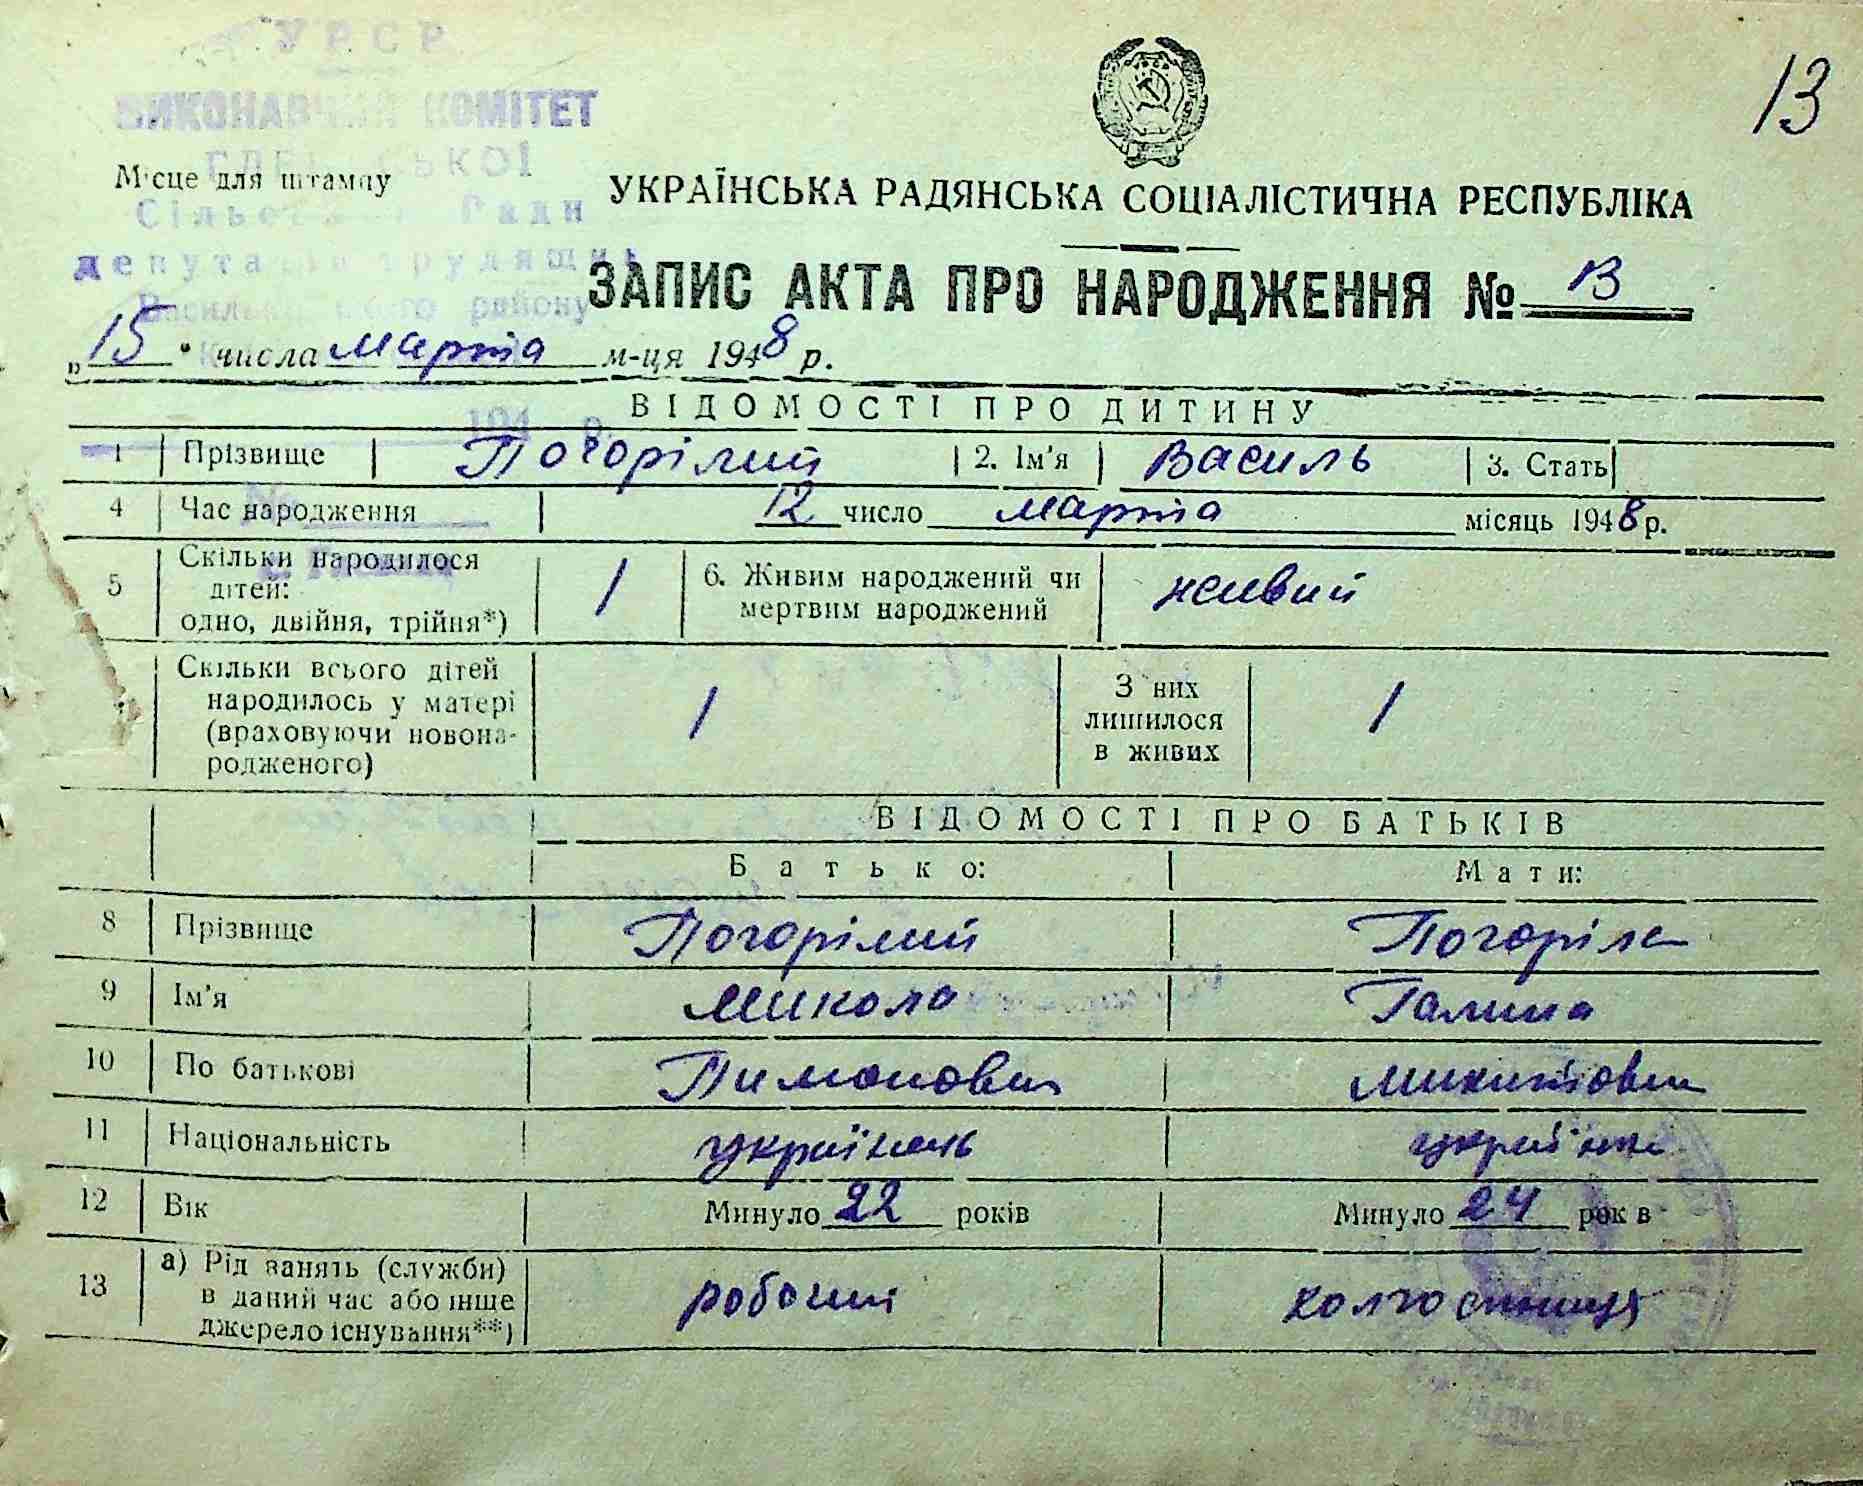 УРСР
13
ВИКОНАВЧИЙ КОМІТЕТ
Місце для штампу
УКРАЇНСЬКА РАДЯНСЬКА СОЦІАЛІСТИЧНА РЕСПУБЛІКА
Сільської Ради
депутатів трудящих
ЗАПИС АКТА ПРО НАРОДЖЕННЯ № 13
району
„15“ числа марта м-ця 1948 р.
ВІДОМОСТІ ПРО ДИТИНУ
194 р.
1 Прізвище Погорілий 2. Ім'я Василь 3. Стать
№
4 Час народження 12 число марта місяць 1948 р.
5 Скільки народилося дітей: одно, двійня, трійня*) 1 6. Живим народжений чи мертвим народжений живий
Скільки всього дітей народилось у матері (враховуючи новонародженого) 1 З них лишилося в живих 1
ВІДОМОСТІ ПРО БАТЬКІВ
Батько: Мати:
8 Прізвище Погорілий Погоріла
9 Ім'я Микола Галина
10 По батькові Пимонович Микитовна
11 Національність українець українка
12 Вік Минуло 22 років Минуло 24 рок в
13 а) Рід занять (служби) в даний час або інше джерело існування**) робочий колгоспниця